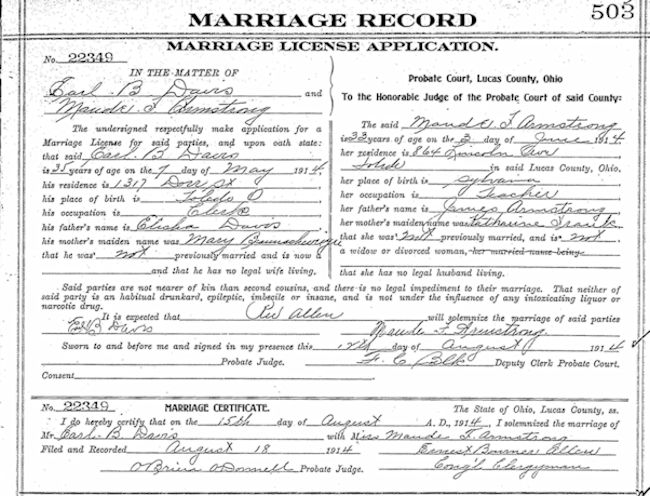 503
MARRIAGE RECORD
MARRIAGE LICENSE APPLICATION.
No. 22349
IN THE MATTER OF
Earl B Davis and
Maude F Armstrong
The undersigned respectfully make application for a
Marriage License for said parties, and upon oath state:
that said Earl B Davis
is 35 years of age on the 7 day of May 1914
his residence is 1317 Dorr St
his place of birth is Toledo O
his occupation is Clerk
his father's name is Elisha Davis
his mother's maiden name was Mary
that he was not previously married and is now a
and that he has no legal wife living.
Probate Court, Lucas County, Ohio
To the Honorable Judge of the Probate Court of said County:
The said Maude F Armstrong
is 33 years of age on the 3 day of June 1914
her residence is 864 Lincoln Ave
Toledo in said Lucas County, Ohio
her place of birth is Sylvania
her occupation is Teacher
her father's name is James Armstrong
her mother's maiden name was Katharine
that she was not previously married, and is not
a widow or divorced woman, her married name being
that she has no legal husband living.
Said parties are not nearer of kin than second cousins, and there is no legal impediment to their marriage. That neither of
said party is an habitual drunkard, epileptic, imbecile or insane, and is not under the influence of any intoxicating liquor or
narcotic drug.
It is expected that Rev Allen will solemnize the marriage of said parties
E B Davis Maude F Armstrong
Sworn to and before me and signed in my presence this 12th day of August 1914
Probate Judge. F. C. Belk Deputy Clerk Probate Court.
Consent
No. 22349 MARRIAGE CERTIFICATE. The State of Ohio, Lucas County, ss.
I do hereby certify that on the 15th day of August A. D., 1914, I solemnized the marriage of
Mr. Earl B. Davis with Miss Maude F Armstrong
Filed and Recorded August 18 1914 Ernest Bourner Allen
O'Brien O'Donnell Probate Judge. Cong'l Clergyman